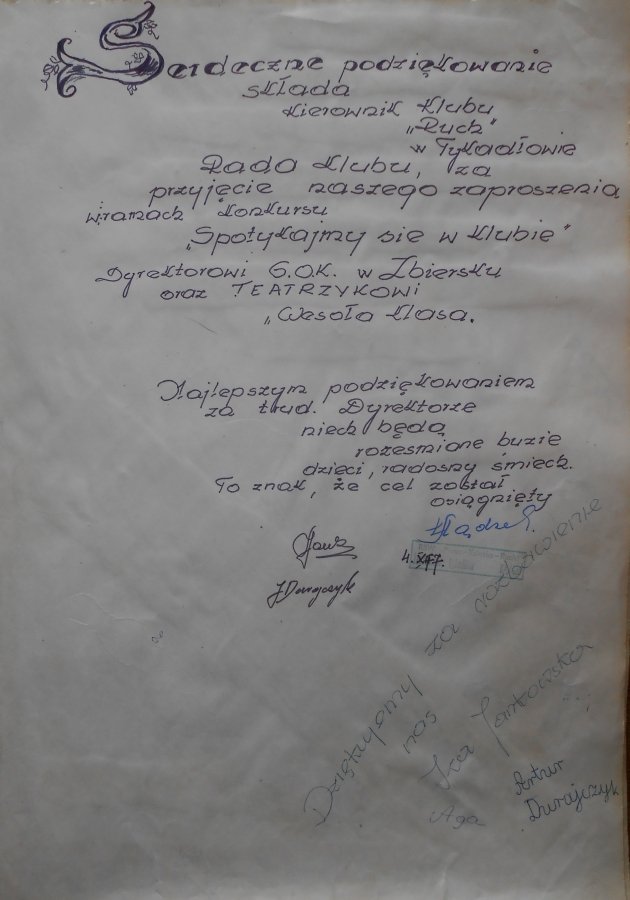 Serdeczne podziękowanie
składa
Kierownik Klubu
„Ruch"
w Tykadłowie
Rada Klubu, za
przyjęcie naszego zaproszenia
w ramach konkursu
„Spotykajmy się w klubie"
Dyrektorowi G.O.K. w Zbiersku
oraz TEATRZYKOWI
„Wesoła Klasa.
Najlepszym podziękowaniem
za trud. Dyrektorze
niech będą
roześmiane buzie
dzieci, radosny śmiech.
To znak, że cel został
osiągnięty
J Durajczyk
Dziękujemy za rozbawienie
nas
Iza Jankowska
Aga
Artur
Durajczyk